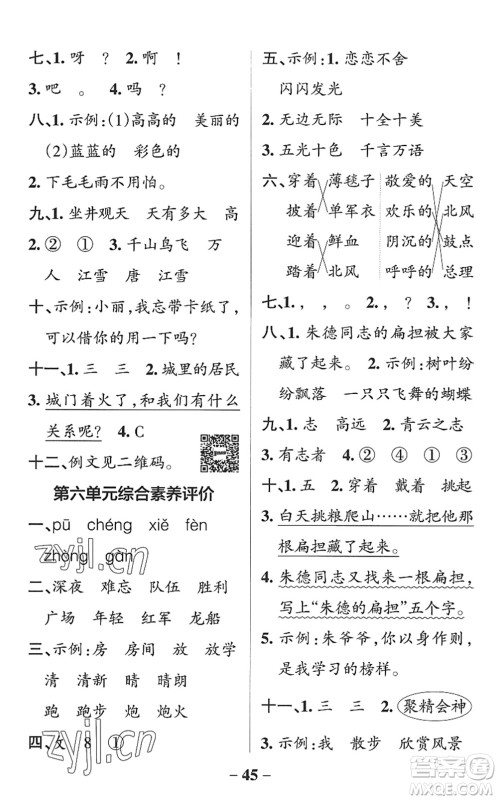 七、1. 呀 ? 2. 啊 !
3. 吧 。 4. 吗 ?
八、1. 示例:(1)高高的 美丽的
(2)蓝蓝的 彩色的
2. 下毛毛雨不用怕。
九、1. 坐井观天 天有多大 高
2. ② ① 3. 千山鸟飞 万
人 江雪 唐 江雪
十、示例:小丽,我忘带卡纸了,
可以借你的用一下吗?
十一、1. 三 三 2. 城里的居民
3. 城门着火了,和我们有什么
关系呢? 4. C
十二、例文见二维码。
第六单元综合素养评价
一、pū chéng xiě fèn
zhōng gǎn
二、深夜 难忘 队伍 胜利
广场 年轻 红军 龙船
三、示例:房 房间 放 放学
清 清新 晴 晴朗
跑 跑步 炮 炮火
四、文 8 ①
五、示例:1. 恋恋不舍
闪闪发光
2. 无边无际 十全十美
3. 五光十色 千言万语
六、穿着 薄毯子 敬爱的 天空
披着 单军衣 欢乐的 北风
迎着 鲜血 阴沉的 鼓点
踏着 北风 呼呼的 总理
七、1. , 。 2. ? 3. , !
八、1. 朱德同志的扁担被大家
藏了起来。 2. 示例:树叶纷
纷飘落 一只只飞舞的蝴蝶
九、1. 志 高远 2. 青云之志
3. 有志者 4. ② ④ ① ③
十、2. 穿着 戴着 挑起
3. 白天挑粮爬山……就把他那
根扁担藏了起来。
4. 朱德同志又找来一根扁担,
写上“朱德的扁担”五个字。
5. 示例:朱爷爷,你以身作则,
是我学习的榜样。
十一、1. 三 三 2. 聚精会神
3. 示例:我 散步 欣赏风景
- 45 -
zyjl.cn
zyjl.cn
答案圈
MXQE.COM